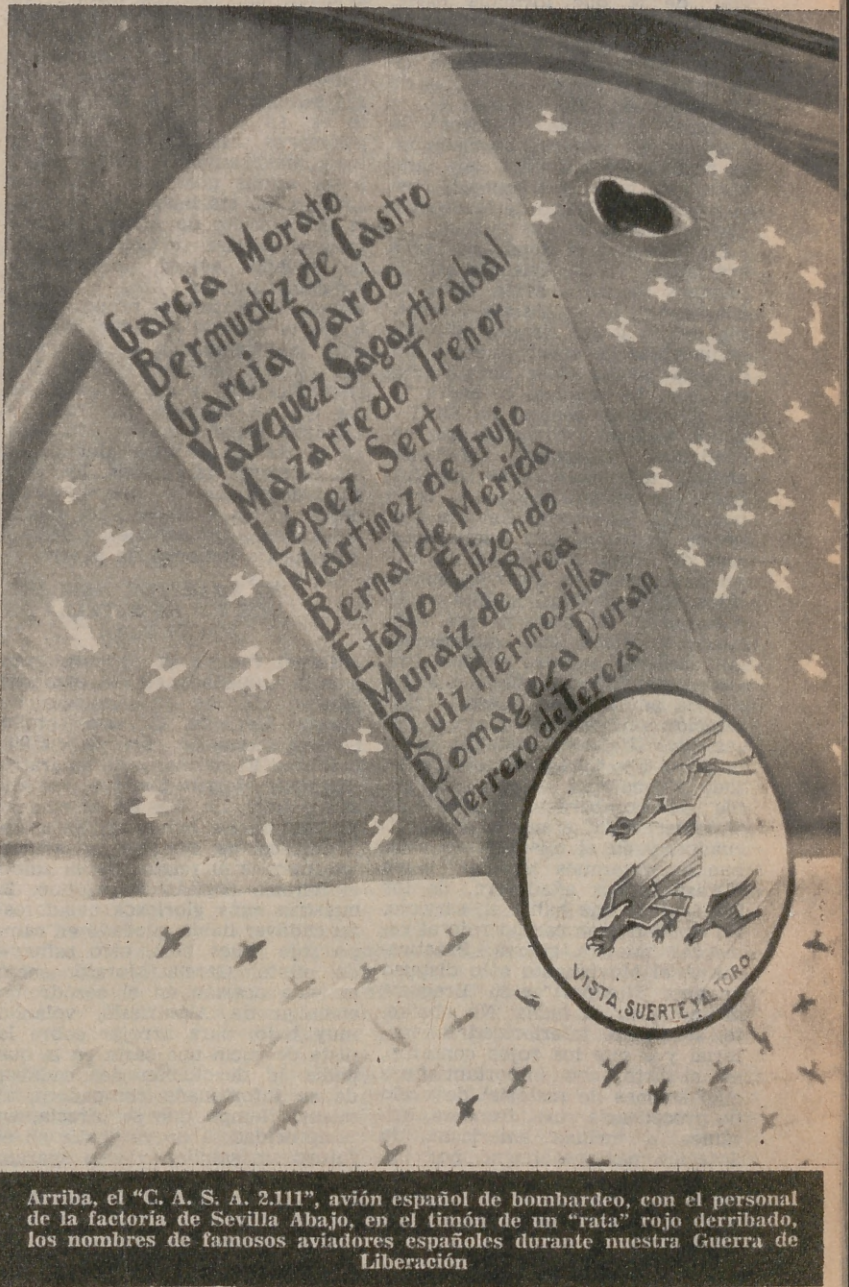 Garcia Morato
Bermudez de Castro
Garcia Pardo
Vazquez Sagastisabal
Mazarredo Trenor
López Sert
Martinez de Irujo
Bernal de Mérida
Etayo Elisondo
Munaiz de Brea
Ruiz Hermosilla
Domagosa Durán
Herrero de Teresa
VISTA, SUERTE Y AL TORO
Arriba, el "C. A. S. A. 2.111", avión español de bombardeo, con el personal
de la factoría de Sevilla Abajo, en el timón de un "rata" rojo derribado,
los nombres de famosos aviadores españoles durante nuestra Guerra de
Liberación